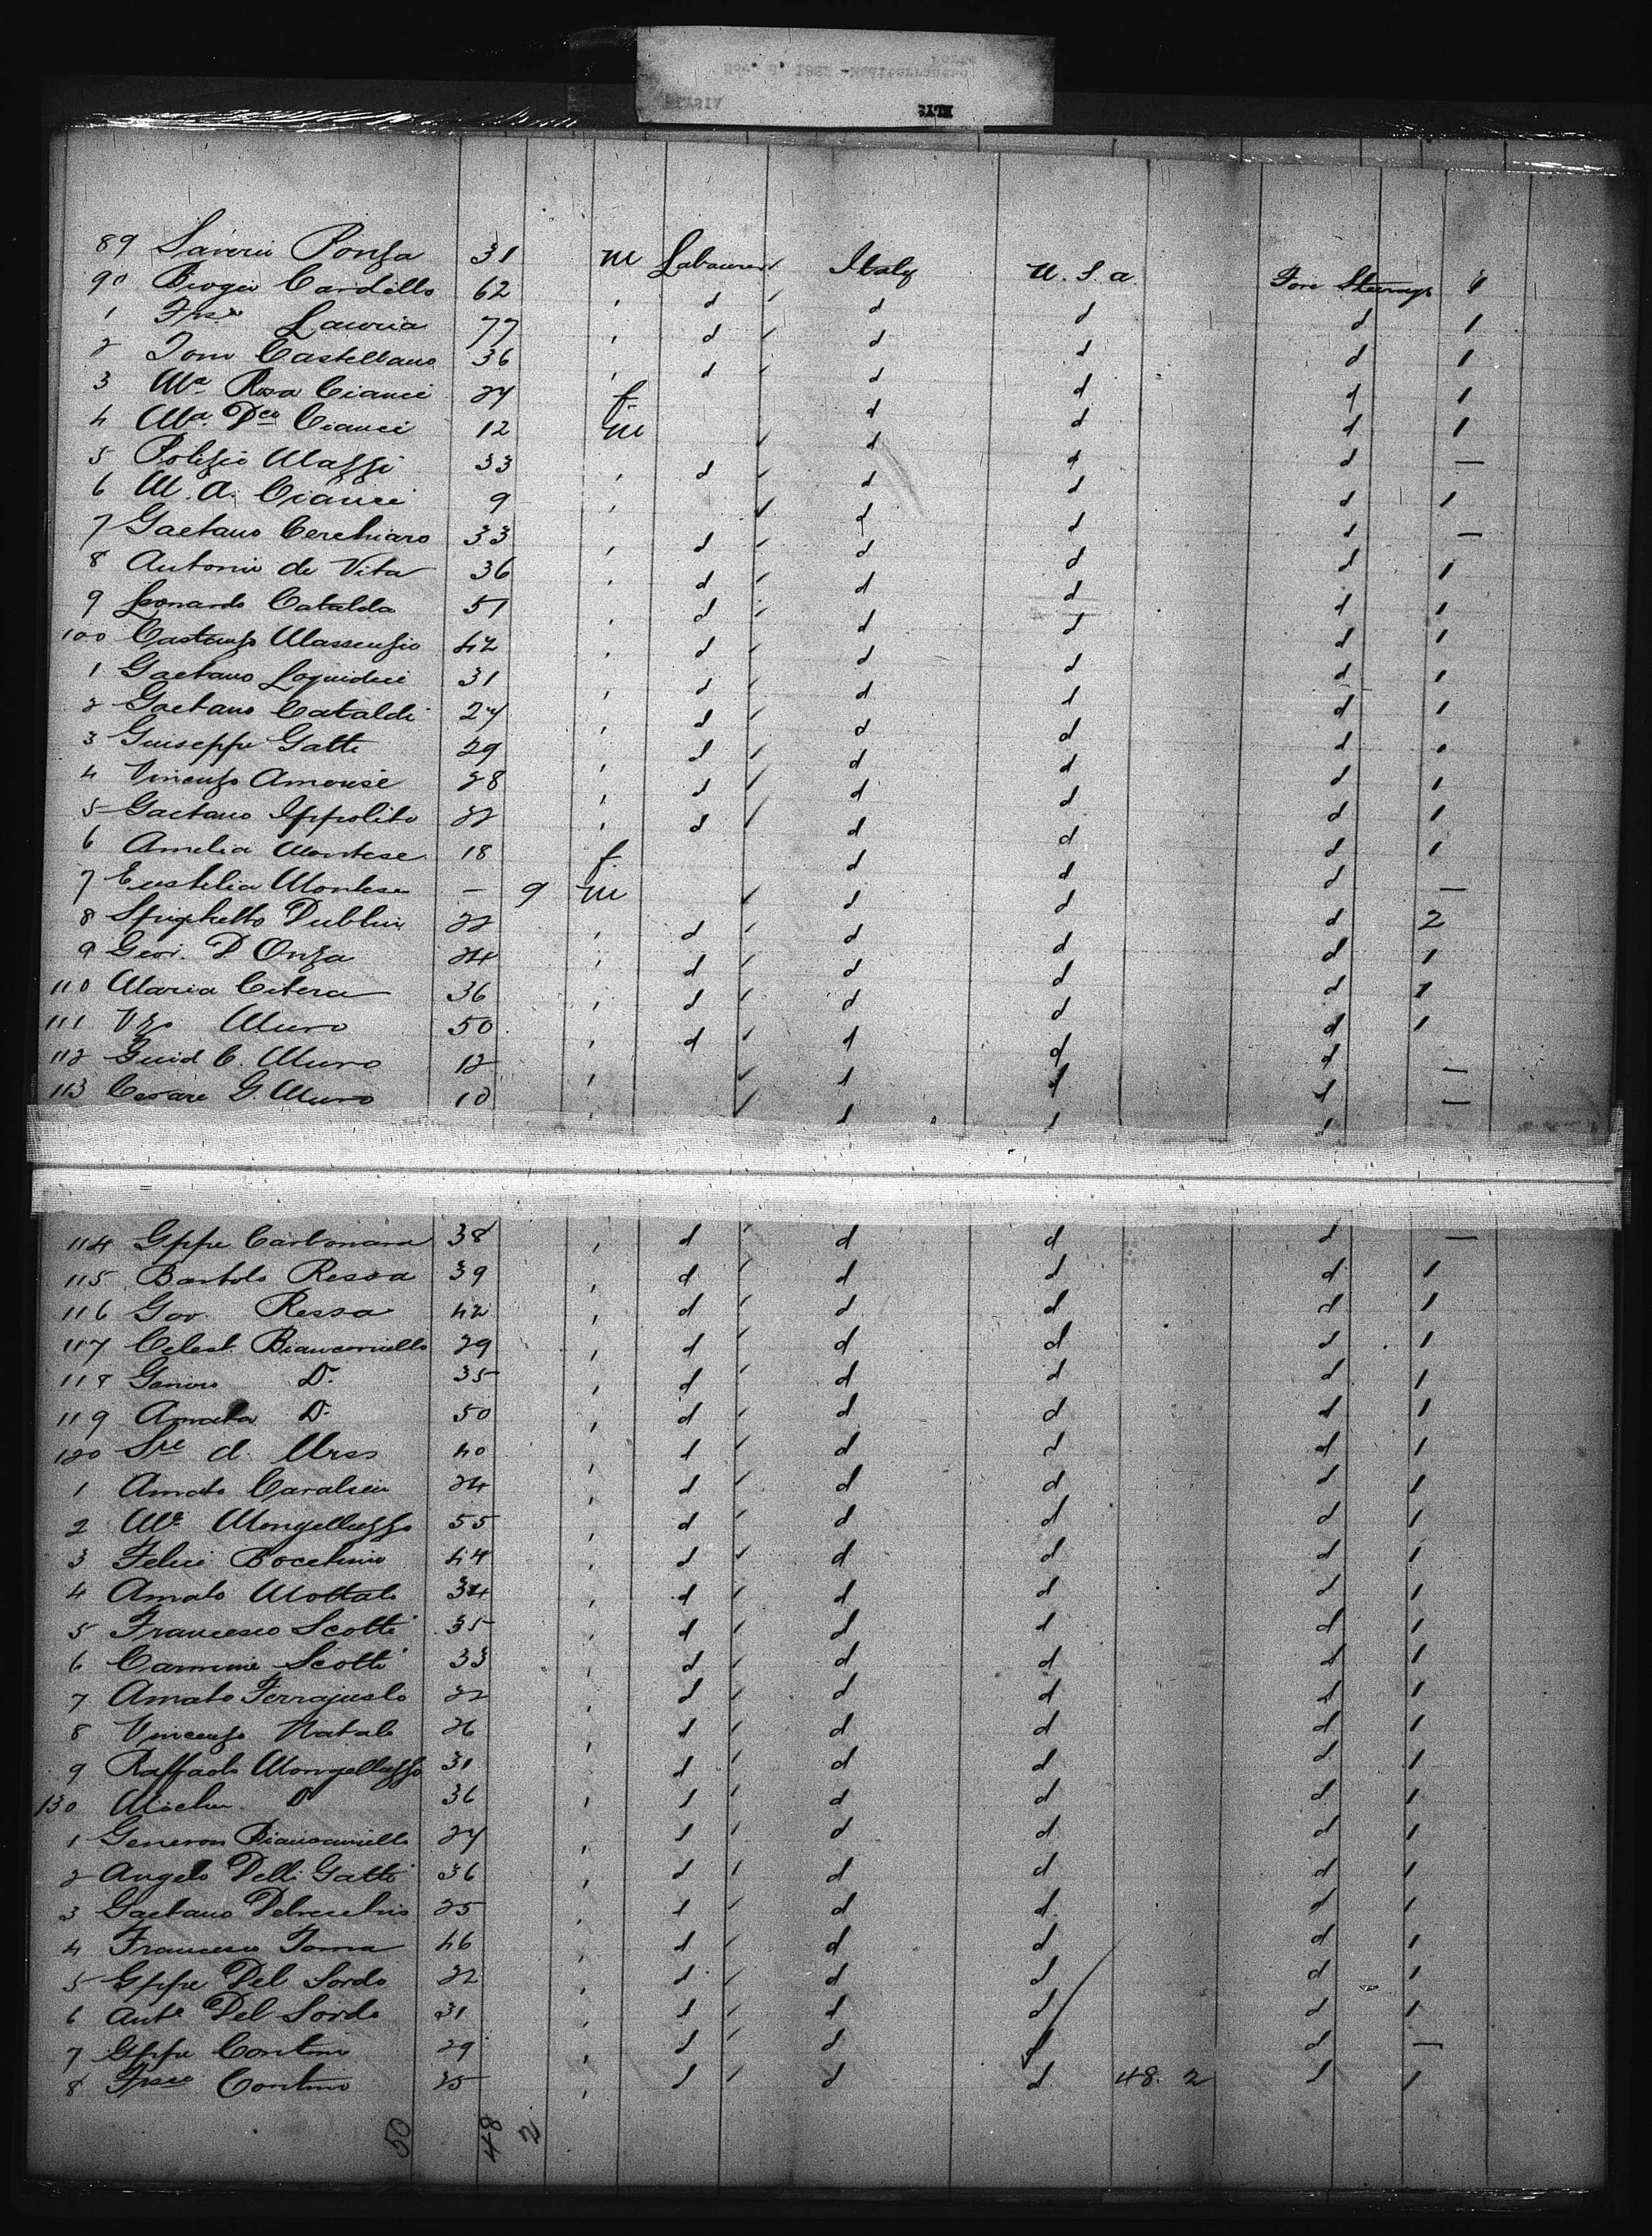 89 Saverio Ponza 31 m Labourer Italy U.S.a. Fore Steerage 1
90 Biagio Cardillo 62 d d d d 1
1 Lauria 77 d d d d 1
2 Tom Castellano 36 d d d d 1
3 Ma Rosa Cianci 27 f d d d 1
4 Ma. Dca Cianci 12 m d d d —
5 Polizio Mazzi 33 d d d d 1
6 M. A. Cianci 9 d d d —
7 Gaetano Cerchiaro 33 d d d d 1
8 Antonio de Vita 36 d d d d 1
9 Leonardo Catalda 51 d d d d 1
100 Massenzio 42 d d d d 1
1 Gaetano Loquidici 31 d d d d 1
2 Gaetano Cataldi 27 d d d d 1
3 Guiseppe Gatti 29 d d d d 1
4 Vincenzo Amorise 28 d d d d 1
5 Gaetano Ippolito 22 d d d d 1
6 Amelia Montese 18 f d d d —
7 Montese — 9 m d d d 2
8 Dublin 22 d d d d 1
9 Geor. D Onza 24 d d d d 1
110 Maria Citera 36 d d d d 1
111 Vzo Muro 50 d d d d
112 Guid C. Muro 12 d d d —
113 Cesare G. Muro 10 d d d —
114 Gppe Carbonara 38 d d d d —
115 Bartolo Ressa 39 d d d d 1
116 Gov. Ressa 42 d d d d 1
117 Celest. Biancaniello 29 d d d d 1
118 D. 35 d d d d 1
119 Amata D. 50 d d d d 1
120 Sre d. Urso 40 d d d d 1
1 Amato 24 d d d d 1
2 Mongelluzzo 55 d d d d 1
3 Felici Bocchino 44 d d d d 1
4 Amato Mottalo 34 d d d d 1
5 Francesco Scotti 35 d d d d 1
6 Carmine Scotti 33 d d d d 1
7 Amato Ferrajuolo 22 d d d d 1
8 Vincenzo Natale 26 d d d d 1
9 Raffaele Mongelluzzo 31 d d d d 1
130 D 36 d d d d 1
1 Biancaniello 27 d d d d 1
2 Angelo Delli Gatti 36 d d d d 1
3 Gaetano Delvecchio 25 d d d d 1
4 Francesco Toma 46 d d d d 1
5 Gppe Del Sordo 22 d d d d 1
6 Anto Del Sordo 31 d d d d 1
7 Gppe Contino 29 d d d d —
8 Fsco Contino 25 d d d 48. 2 d 1
50 48 2